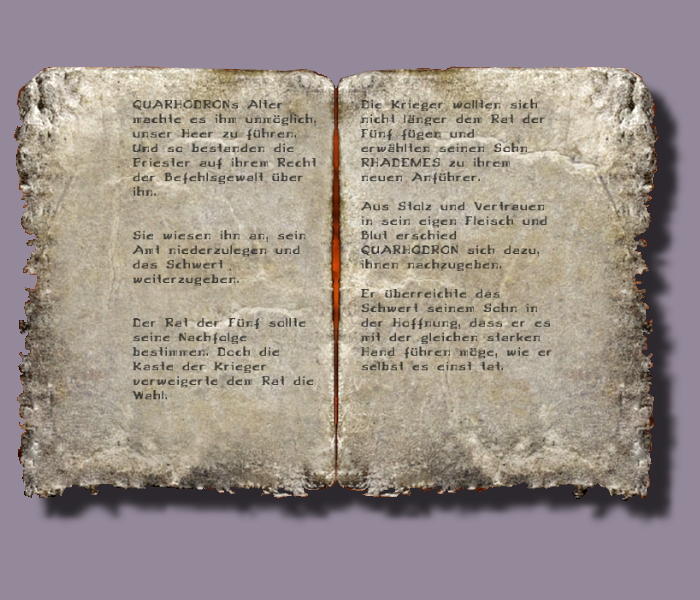 QUARHODRONs Alter
machte es ihm unmöglich,
unser Heer zu führen.
Und so bestanden die
Priester auf ihrem Recht
der Befehlsgewalt über
ihn.
Sie wiesen ihn an, sein
Amt niederzulegen und
das Schwert
weiterzugeben.
Der Rat der Fünf sollte
seine Nachfolge
bestimmen. Doch die
Kaste der Krieger
verweigerte dem Rat die
Wahl.
Die Krieger wollten sich
nicht länger dem Rat der
Fünf fügen und
erwählten seinen Sohn
RHADEMES zu ihrem
neuen Anführer.
Aus Stolz und Vertrauen
in sein eigen Fleisch und
Blut erschied
QUARHODRON sich dazu,
ihnen nachzugeben.
Er überreichte das
Schwert seinem Sohn in
der Hoffnung, dass er es
mit der gleichen starken
Hand führen möge, wie er
selbst es einst tat.